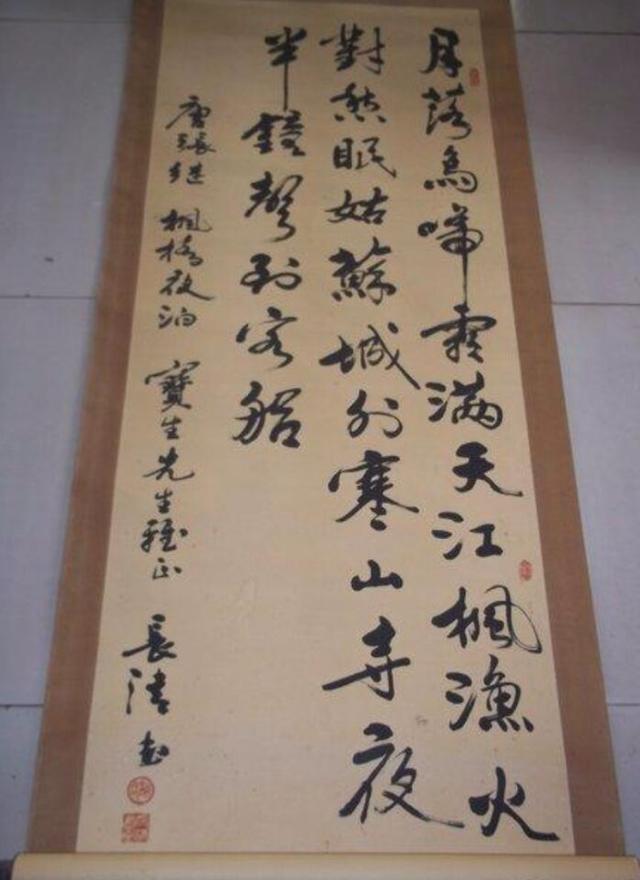 月落烏啼霜满天江楓漁火
對愁眠姑蘇城外寒山寺夜
半鐘聲到客船
唐張继 楓橋夜泊 寶生先生雅正
長清书